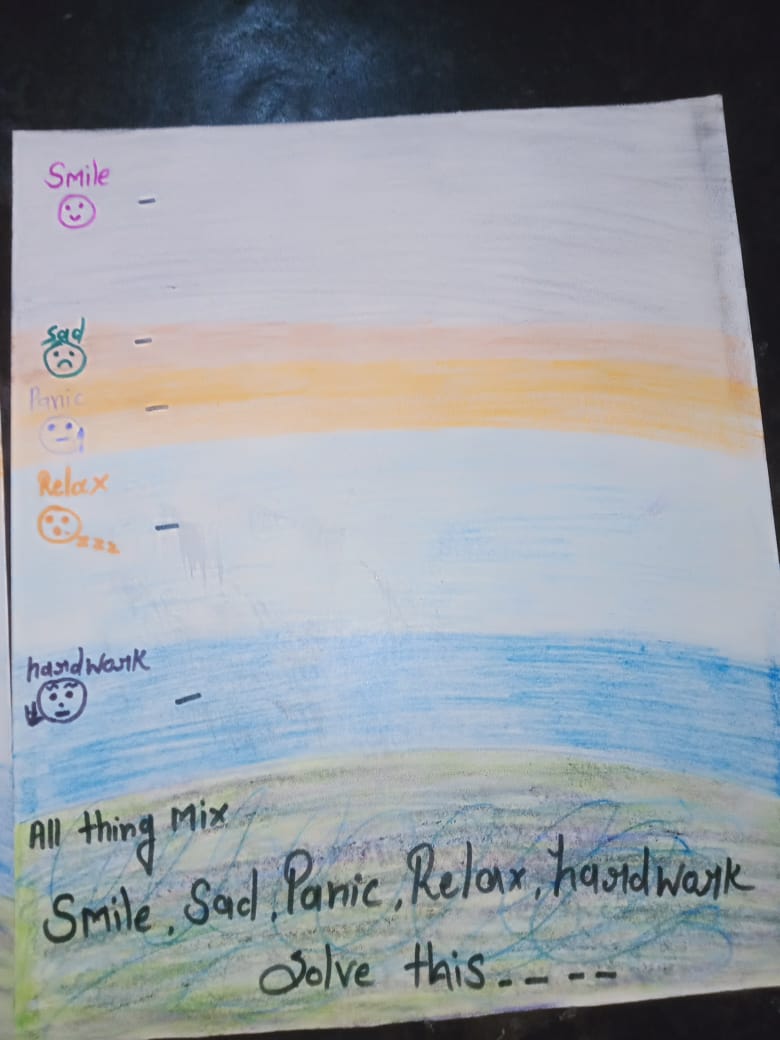 Smile
-
Sad
-
Panic
-
Relax
zzz
-
hardwark
-
All thing Mix
Smile, Sad, Panic, Relax, hardwark
Solve this - - - -